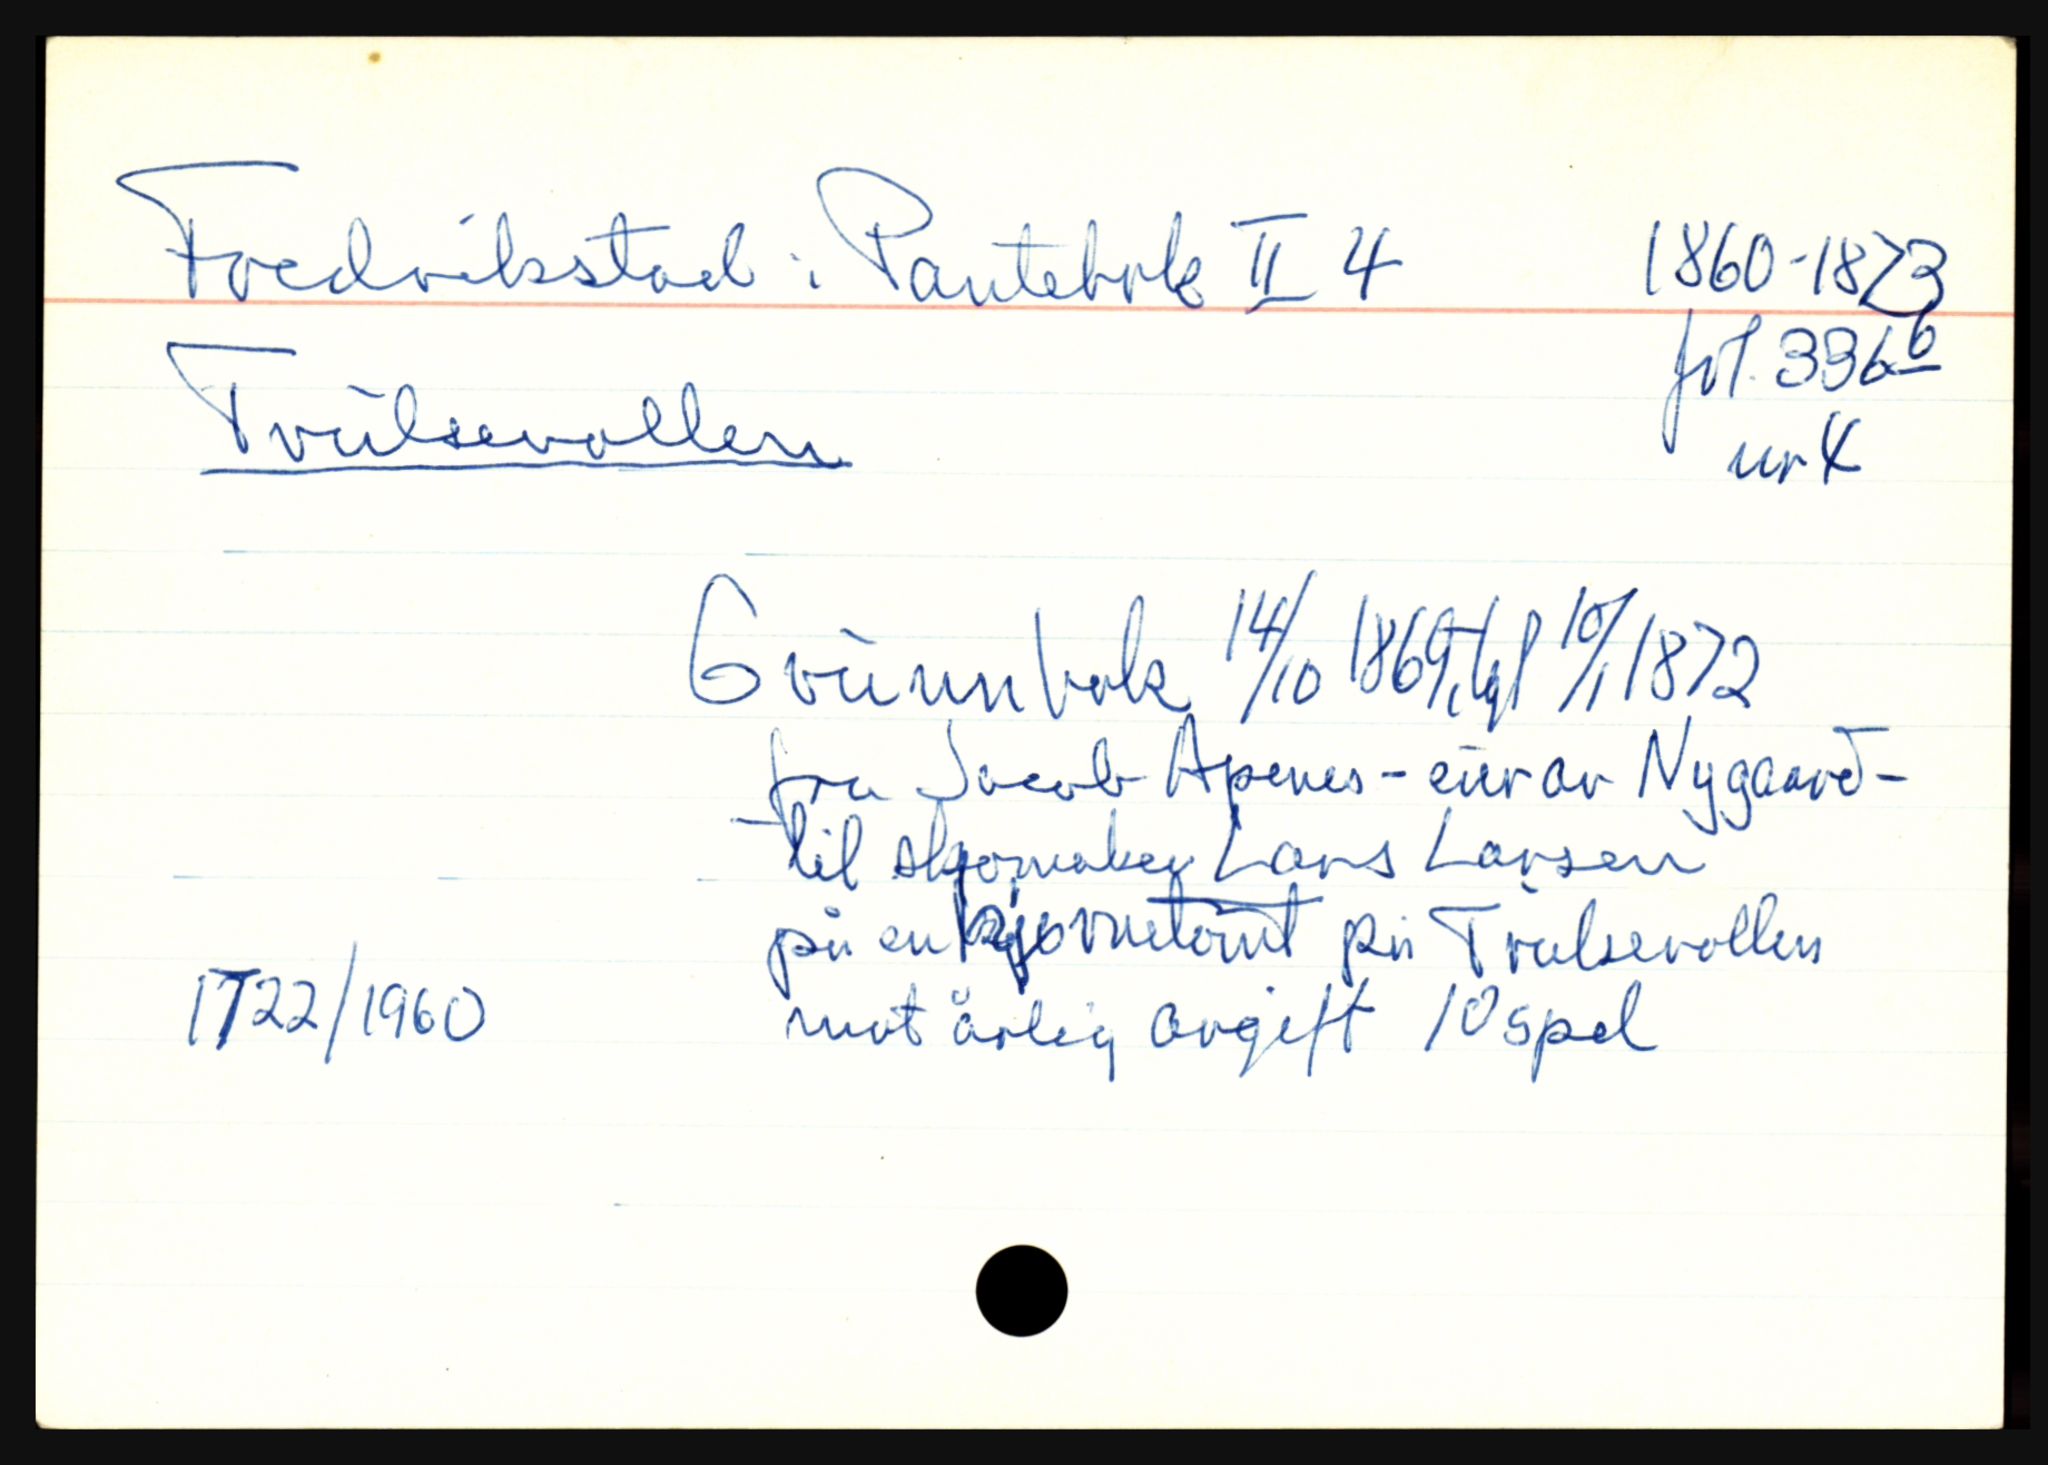 Fredrikstad: Pantebok II 4 1860-1873
fol. 336b
Trulsevollen
nr 4
Grunnbok 14/10 1869, tgl 10/1 1872
fra Jacob Apenes - eier av Nygaard -
til skomaker Lars Larsen
på en hjørnetomt på Trulsevollen
mot årlig avgift 10 spd
1722/1960